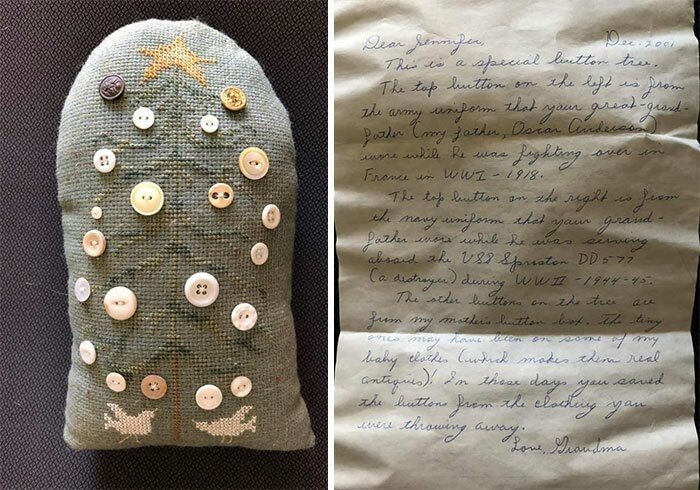 Dear Jennifer, Dec. 2001
This is a special button tree.
The top button on the left is from
the army uniform that your great-grand-
father (my father, Oscar Anderson)
wore while he was fighting over in
France in WWI - 1918.
The top button on the right is from
the navy uniform that your grand-
father wore while he was serving
aboard the USS Sproston DD577
(a destroyer) during WWII - 1944-45.
The other buttons on the tree are
from my mother's button box. The tiny
ones may have been on some of my
baby clothes (which makes them real
antiques)! In those days you saved
the buttons from the clothing you
were throwing away.
Love, Grandma